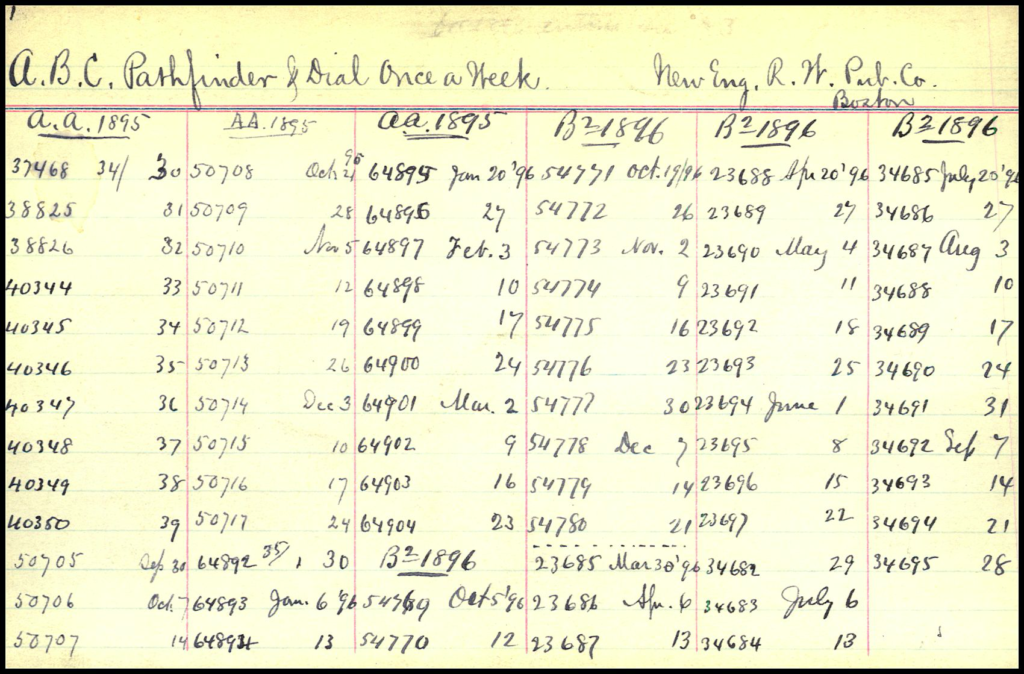 1
A.B.C. Pathfinder & Dial Once a Week. New Eng. R. W. Pub. Co.
Boston
A.A. 1895 AA. 1895 AA. 1895 B2 1896 B2 1896 B2 1896
37468 34/ 30 50708 Oct 21 95 64895 Jan 20 '96 54771 Oct. 19/96 23688 Apr 20 '96 34685 July 20 '96
38825 31 50709 28 64896 27 54772 26 23689 27 34686 27
38826 32 50710 Nov 5 64897 Feb. 3 54773 Nov. 2 23690 May 4 34687 Aug 3
40344 33 50711 12 64898 10 54774 9 23691 11 34688 10
40345 34 50712 19 64899 17 54775 16 23692 18 34689 17
40346 35 50713 26 64900 24 54776 23 23693 25 34690 24
40347 36 50714 Dec 3 64901 Mar. 2 54777 30 23694 June 1 34691 31
40348 37 50715 10 64902 9 54778 Dec 7 23695 8 34692 Sep 7
40349 38 50716 17 64903 16 54779 14 23696 15 34693 14
40350 39 50717 24 64904 23 54780 21 23697 22 34694 21
50705 Sep 30 64892 35/ 30 B2 1896 23685 Mar 30 '96 34682 29 34695 28
50706 Oct. 7 64893 Jan. 6 '96 54769 Oct 5 '96 23686 Apr. 6 34683 July 6
50707 14 64894 13 54770 12 23687 13 34684 13